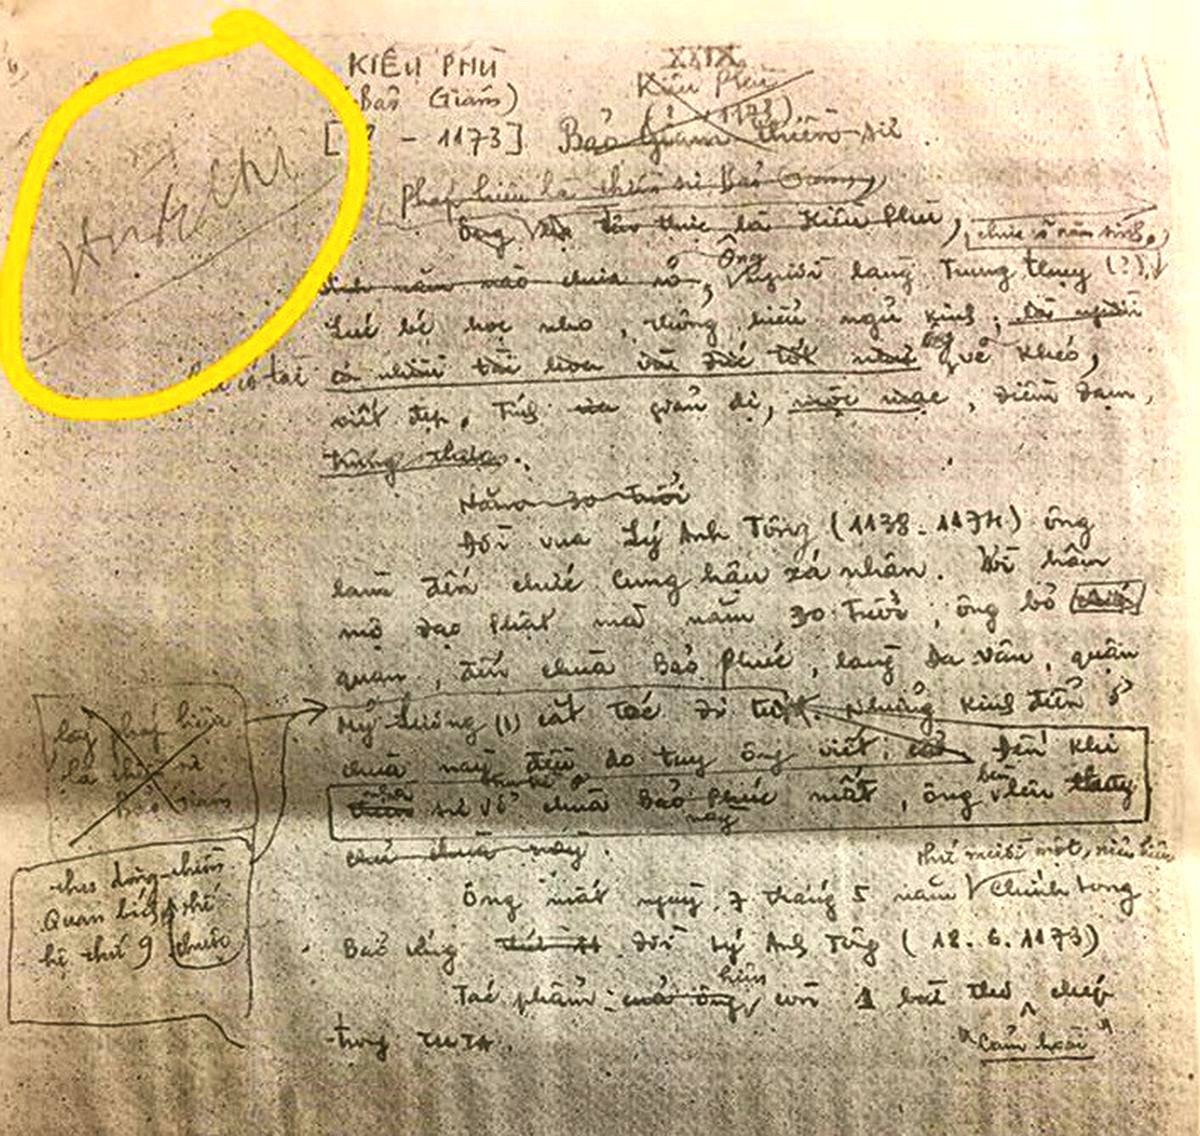 KIỀU PHÙ
XXIX.
(Bảo Giám)
Kiều Phù
(? - 1173)
[? - 1173]
Bảo Giám thiền sư
Pháp hiệu là thiền sư Bảo Giám,
Ông tên thực là Kiều Phù,
chưa rõ năm sinh,
sinh năm nào chưa rõ, Ông người làng Trung Thụy (?),
lúc bé học nho, thông hiểu ngũ kinh;
có nhiều tài hoa vẽ khéo,
viết đẹp, tính giản dị, mộc mạc, điềm đạm,
trung thực.
Năm 30 tuổi
Đời vua Lý Anh Tông (1138-1174) ông
làm đến chức Cung hậu xá nhân. Vì hâm
mộ đạo Phật mà năm 30 tuổi, ông bỏ
quan, đến chùa Bảo Phúc, làng Đa Vân, quận
Mỹ Lương (1) cắt tóc đi tu. Những kinh điển ở
chùa này đều do tay ông viết; Đến khi
sư về chùa Bảo Phúc mất, ông bèn lên thay
này
chủ chùa này.
lấy pháp hiệu
là thiền sư
Bảo Giám
theo dòng thiền
Quan Bích thế
hệ thứ 9 thuộc
thứ mười một, niên hiệu
Ông mất ngày 7 tháng 5 năm Chính Long
Bảo Ứng đời Lý Anh Tông (18.6.1173)
Tác phẩm của ông, hiện còn 1 bài thơ chép
"Cảm hoài"
trong TUTA.